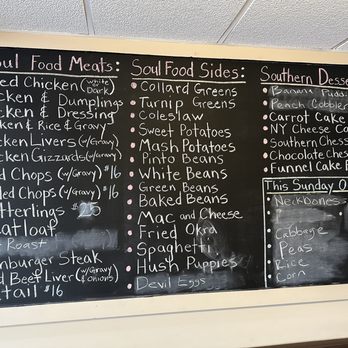 oul Food Meats:
ed Chicken (white Dark)
cken & Dumplings
cken & Dressing
cken & Rice & Gravy
cken Livers (w/Gravy)
cken Gizzards (w/Gravy)
d Chops (w/Gravy) $16
led Chops (w/Gravy) $16
tterlings $25
atloaf
Roast
mburger Steak
d Beef Liver (w/Gravy & onions)
tail $16
Soul Food Sides:
Collard Greens
Turnip Greens
Coleslaw
Sweet Potatoes
Mash Potatoes
Pinto Beans
White Beans
Green Beans
Baked Beans
Mac and Cheese
Fried Okra
Spaghetti
Hush Puppies
Devil Eggs
Southern Desse
Banana Pudd
Peach Cobbler
Carrot Cake
NY Cheese Ca
Southern Chess
Chocolate Chess
Funnel Cake
This Sunday O
Neckbones
Cabbage
Peas
Rice
Corn